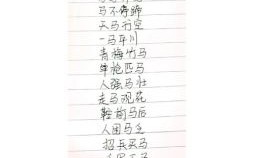 马不停蹄
天马行空
一马平川
青梅竹马
单枪匹马
人强马壮
走马观花
鞍前马后
人困马乏
招兵买马